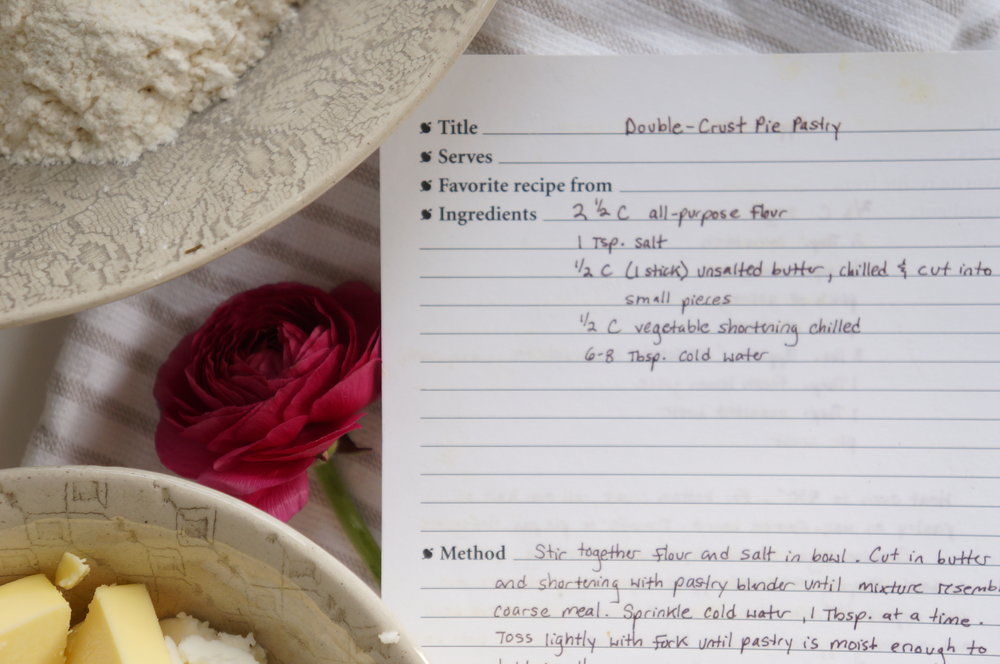 Title Double-Crust Pie Pastry
Serves
Favorite recipe from
Ingredients 2 ½ C all-purpose flour
1 Tsp. salt
½ C (1 stick) unsalted butter, chilled & cut into
small pieces
½ C vegetable shortening chilled
6-8 Tbsp. cold water
Method Stir together flour and salt in bowl. Cut in butter
and shortening with pastry blender until mixture resemb
coarse meal. Sprinkle cold water, 1 Tbsp. at a time.
Toss lightly with fork until pastry is moist enough to